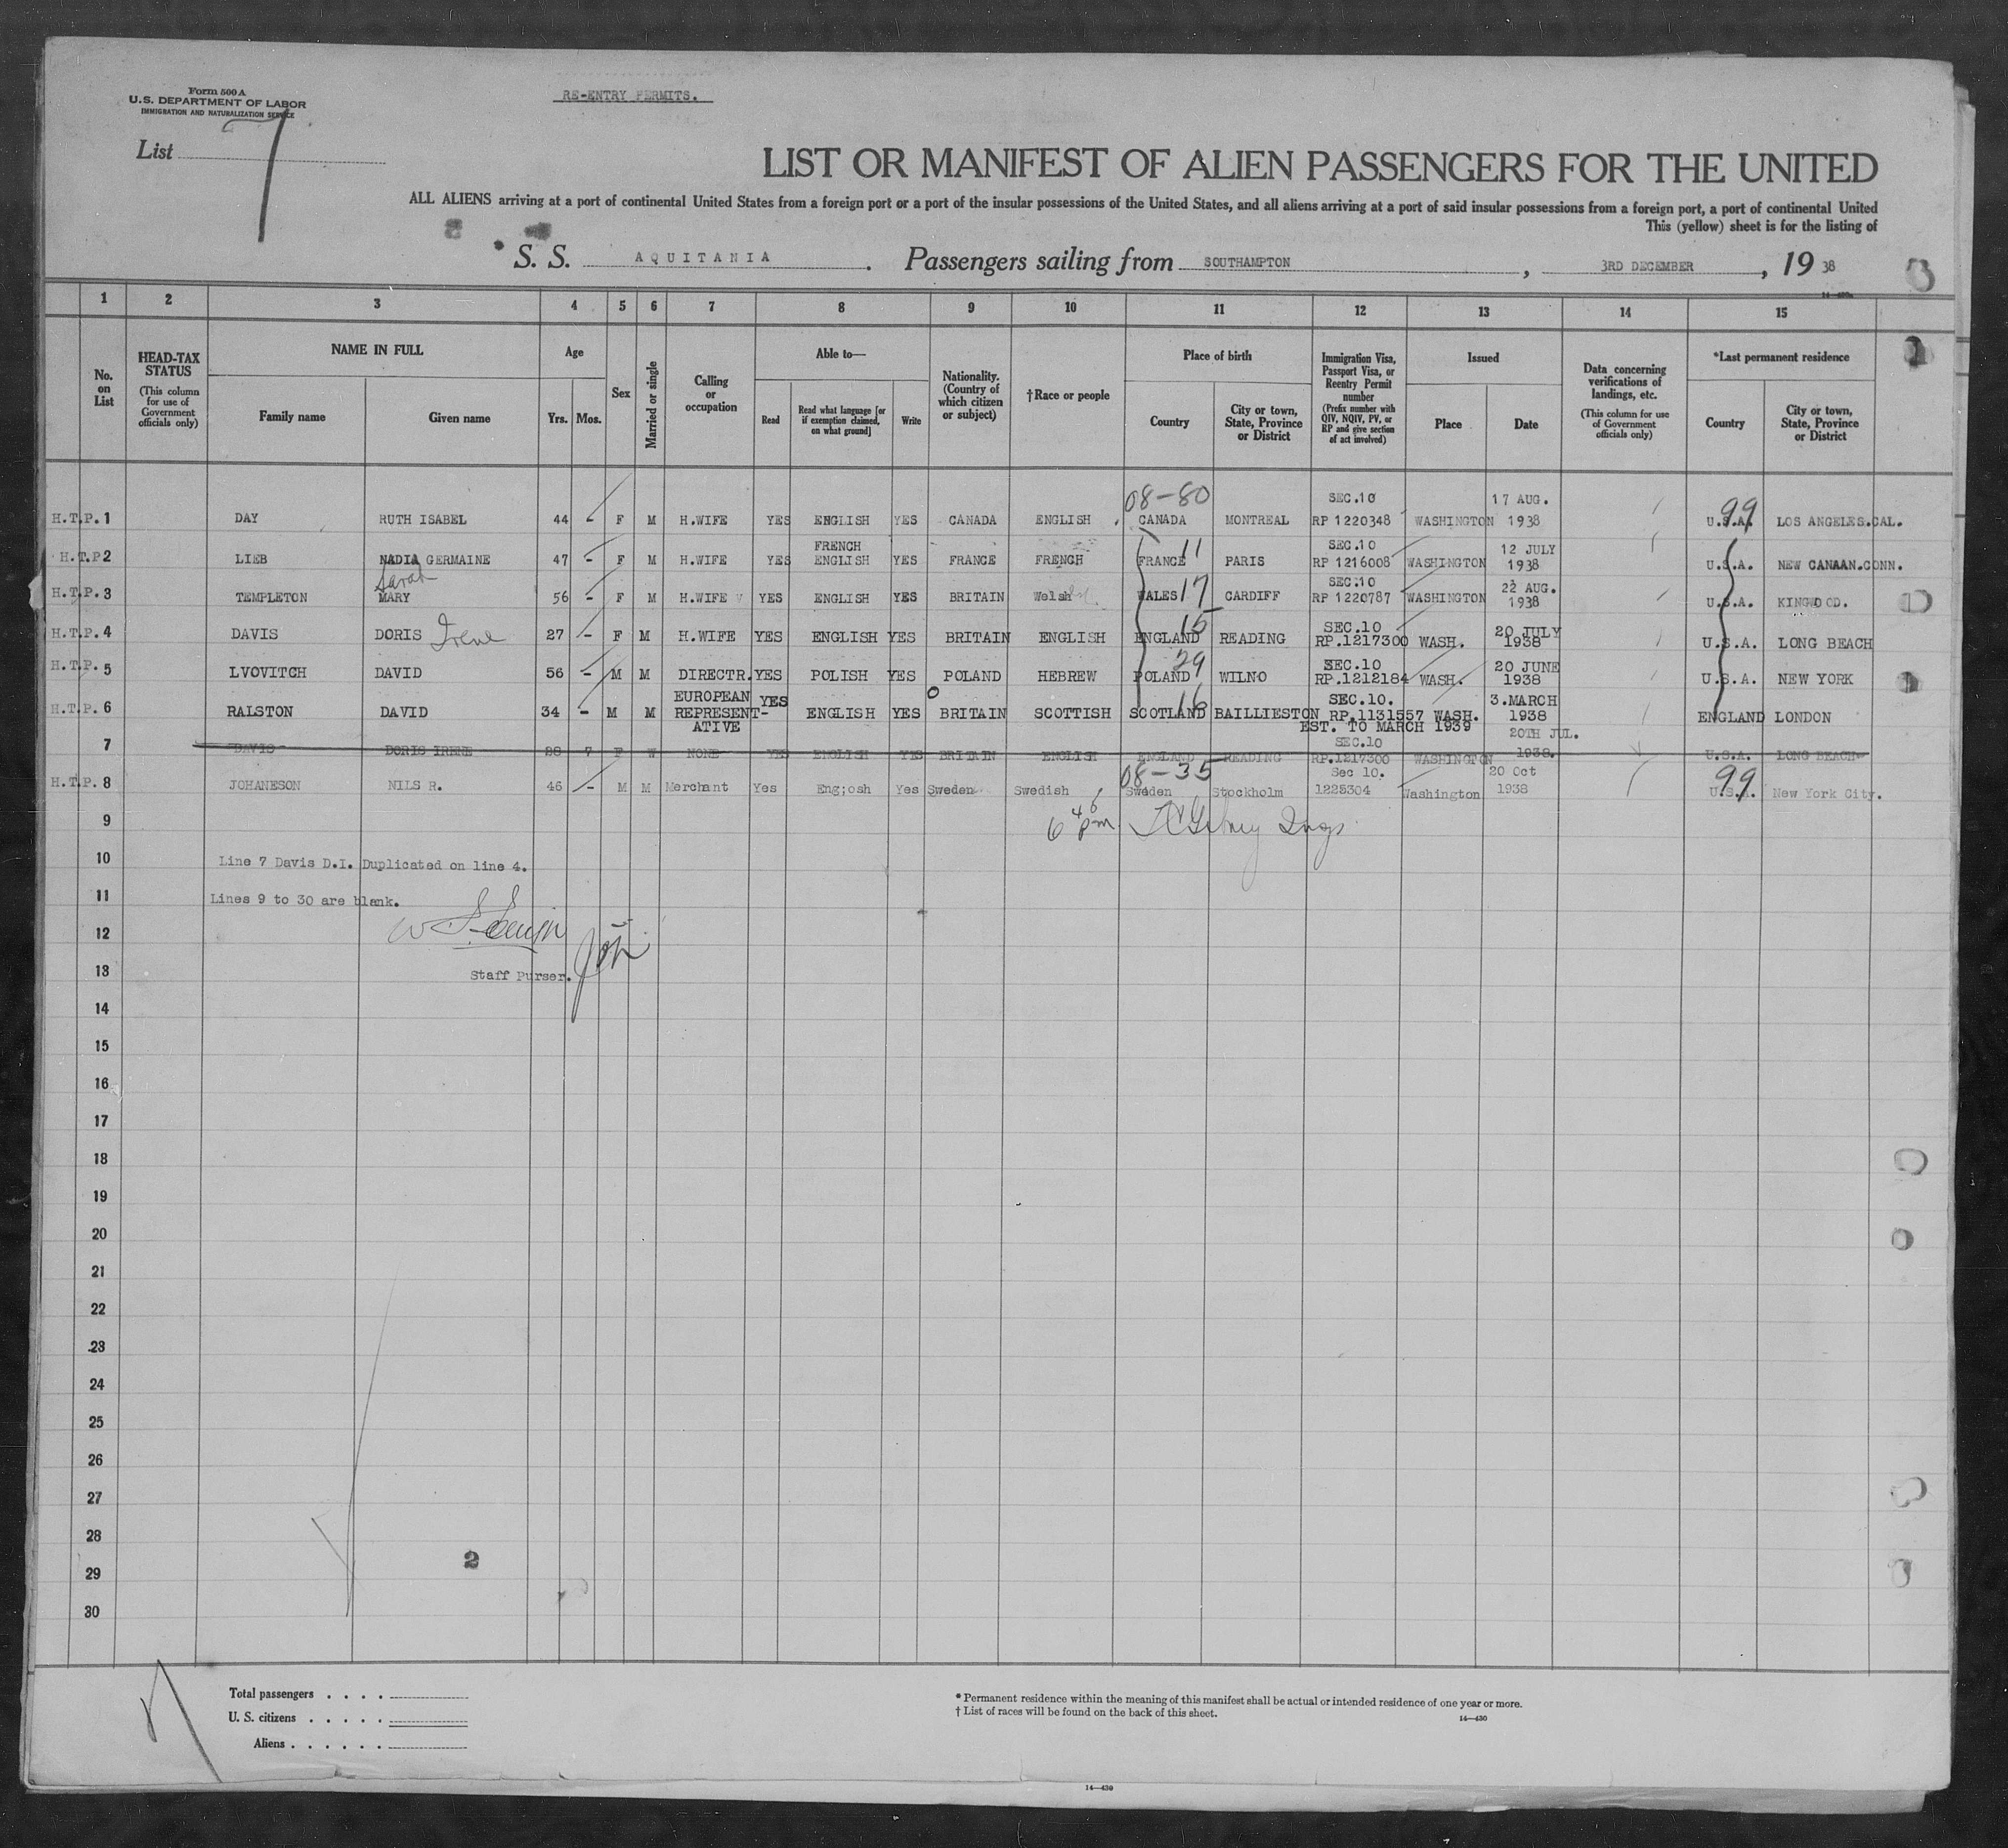 Form 500 A
U.S. DEPARTMENT OF LABOR
IMMIGRATION AND NATURALIZATION SERVICE
RE-ENTRY PERMITS.
List 7
LIST OR MANIFEST OF ALIEN PASSENGERS FOR THE UNITED
ALL ALIENS arriving at a port of continental United States from a foreign port or a port of the insular possessions of the United States, and all aliens arriving at a port of said insular possessions from a foreign port, a port of continental United
This (yellow) sheet is for the listing of
S. S. AQUITANIA . Passengers sailing from SOUTHAMPTON , 3RD DECEMBER , 19 38
14—430a
1 2 3 4 5 6 7 8 9 10 11 12 13 14 15
No. on List
HEAD-TAX STATUS
(This column for use of Government officials only)
NAME IN FULL
Family name
Given name
Age
Yrs. Mos.
Sex
Married or single
Calling or occupation
Able to—
Read
Read what language [or if exemption claimed, on what ground]
Write
Nationality. (Country of which citizen or subject)
†Race or people
Place of birth
Country
City or town, State, Province or District
Immigration Visa, Passport Visa, or Reentry Permit number
(Prefix number with QIV, NQIV, PV, or RP and give section of act involved)
Issued
Place
Date
Data concerning verifications of landings, etc.
(This column for use of Government officials only)
*Last permanent residence
Country
City or town, State, Province or District
08-80 SEC.10 17 AUG. 99
H.T.P. 1 DAY RUTH ISABEL 44 - F M H.WIFE YES ENGLISH YES CANADA ENGLISH CANADA MONTREAL RP 1220348 WASHINGTON 1938 U.S.A. LOS ANGELES.CAL.
FRENCH 11 SEC.10 12 JULY
H.T.P 2 LIEB NADIA GERMAINE 47 - F M H.WIFE YES ENGLISH YES FRANCE FRENCH FRANCE PARIS RP 1216008 WASHINGTON 1938 U.S.A. NEW CANAAN.CONN.
Sarah 17 SEC.10 22 AUG.
H.T.P. 3 TEMPLETON MARY 56 - F M H.WIFE YES ENGLISH YES BRITAIN Welsh WALES CARDIFF RP 1220787 WASHINGTON 1938 U.S.A. KINGWOOD.
15 SEC.10 20 JULY
H.T.P. 4 DAVIS DORIS Irene 27 - F M H.WIFE YES ENGLISH YES BRITAIN ENGLISH ENGLAND READING RP.1217300 WASH. 1938 U.S.A. LONG BEACH
29 SEC.10 20 JUNE
H.T.P. 5 LVOVITCH DAVID 56 - M M DIRECTR. YES POLISH YES POLAND HEBREW POLAND WILNO RP.1212184 WASH. 1938 U.S.A. NEW YORK
EUROPEAN YES 16 SEC.10. 3.MARCH
H.T.P. 6 RALSTON DAVID 34 - M M REPRESENT- ENGLISH YES BRITAIN SCOTTISH SCOTLAND BAILLIESTON RP.1131557 WASH. 1938 ENGLAND LONDON
ATIVE EST. TO MARCH 1939
SEC.10 20TH JUL.
7 DAVIS DORIS IRENE 28 7 F W NONE YES ENGLISH YES BRITAIN ENGLISH ENGLAND READING RP.1217300 WASHINGTON 1938. U.S.A. LONG BEACH
08-35 Sec 10. 20 Oct 99
H.T.P. 8 JOHANESON NILS R. 46 - M M Merchant Yes Eng;osh Yes Sweden Swedish Sweden Stockholm 1225304 Washington 1938 U.S.A. New York City.
9
10 Line 7 Davis D.I. Duplicated on line 4.
11 Lines 9 to 30 are blank.
12
13 Staff Purser.
14
15
16
17
18
19
20
21
22
23
24
25
26
27
28
2
29
30
Total passengers . . . .
U. S. citizens . . . . .
Aliens . . . . . .
* Permanent residence within the meaning of this manifest shall be actual or intended residence of one year or more.
† List of races will be found on the back of this sheet.
14—430
14—430